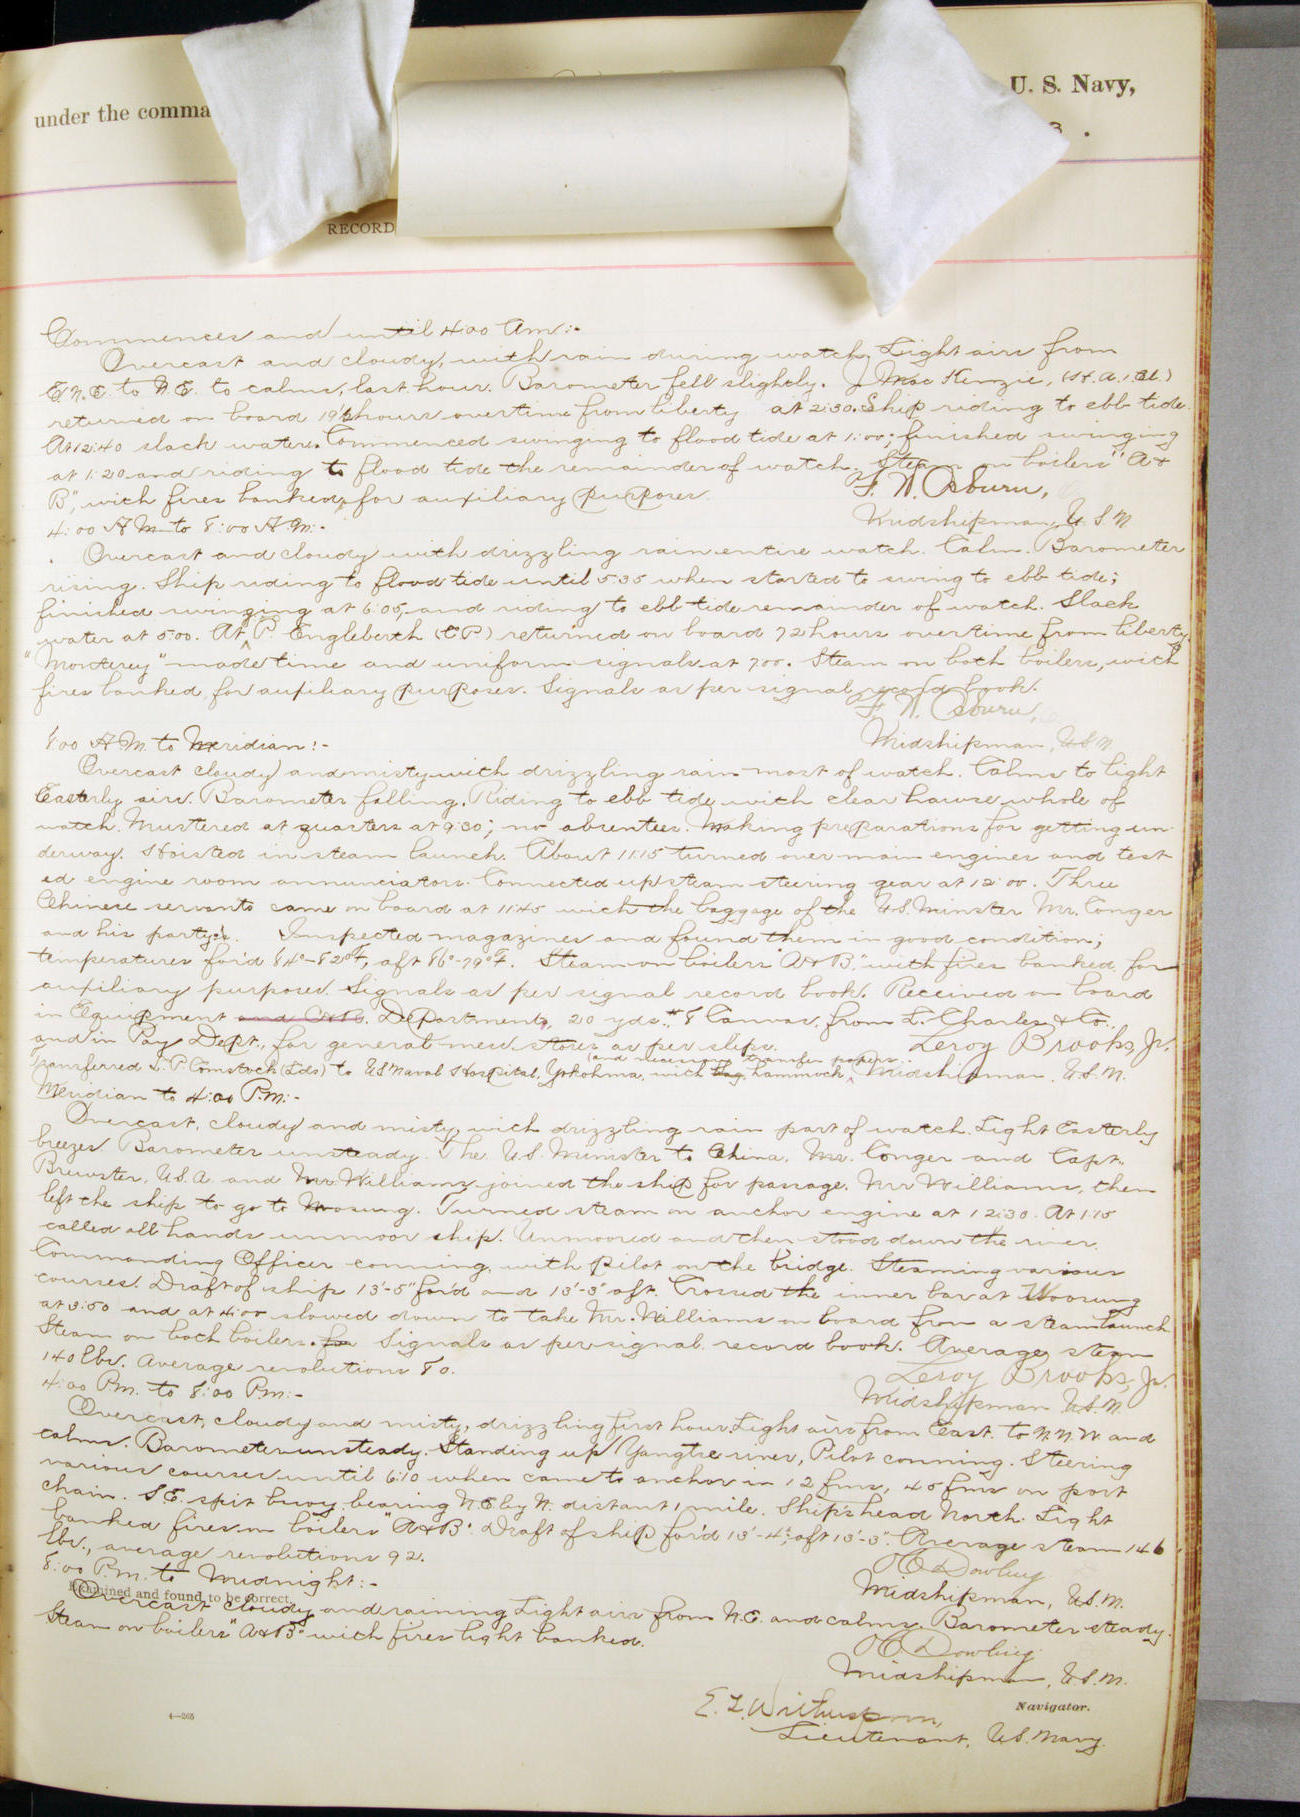 under the comma
U. S. Navy,
3 .
RECORD
Commences and until 4:00 Am:-
Overcast and cloudy, with rain during watch, Light airs from
E.N.E. to N.E. to calms, last hour. Barometer fell slightly. J. Mac Kenzie, (H.A.1.Cl.)
returned on board 19½ hours overtime from liberty at 2:30. Ship riding to ebb tide.
At 12:40 slack water. Commenced swinging to flood tide at 1:00; finished swinging
at 1:20 and riding to flood tide the remainder of watch. Steam on boilers "A &
B", with fires banked, for auxiliary purposes.
F. N. Osburn,
Midshipman, U.S.N
4:00 A M to 8:00 A.M:-
Overcast and cloudy with drizzling rain entire watch. Calm. Barometer
rising. Ship riding to flood tide until 5:35 when started to swing to ebb tide;
finished swinging at 6:05, and riding to ebb tide remainder of watch. Slack
water at 5:00. At, P. Engleberth (C.P.) returned on board 72 hours overtime from liberty.
"Monterey" made time and uniform signals at 7:00. Steam on both boilers, with
fires banked, for auxiliary purposes. Signals as per signal record book.
F. N. Osburn,
Midshipman, U.S.N
8:00 A.M. to Meridian:-
Overcast cloudy and misty with drizzling rain most of watch. Calms to light
Easterly airs. Barometer falling. Riding to ebb tide with clear hawse whole of
watch. Mustered at quarters at 9:30; no absentees. Making preparations for getting un-
derway. Hoisted in steam launch. About 11:15 turned over main engines and test-
ed engine room annunciators. Connected up steam steering gear at 12:00. Three
Chinese servants came on board at 11:45 with the baggage of the U.S. Minster Mr. Conger
and his party. Inspected magazines and found them in good condition;
temperatures for'd 84°-82°F, aft 86°-79°F. Steam on boilers "A & B," with fires banked for
auxiliary purposes. Signals as per signal record book. Received on board
in Equipment and C&R. Department, 20 yds. #8 Canvas, from L. Charles & Co.,
and in Pay Dept., for general mess stores as per slips.
Leroy Brooks, Jr.
(and necessary transfer papers.
Transferred L. P. Comstock (Lds) to U.S Naval Hospital, Yokohma, with bag, hammock, Midshipman, U.S.N.
Meridian to 4:00 P.M:-
Overcast, cloudy and misty, with drizzling rain part of watch. Light Easterly
breezes. Barometer unsteady. The U.S. Minister to China, Mr. Conger and Capt.
Brewster, U.S.A. and Mr. Williams joined the ship for passage. Mr Williams, then
left the ship to go to Woosung. Turned steam on anchor engine at 12:30. At 1:15
called all hands unmoor ship. Unmoored and then stood down the river.
Commanding Officer conning, with pilot on the bridge. Steaming various
courses. Draft of ship 13'-5" for'd and 13'-3" aft. Crossed the inner bar at Woosung
at 3:50 and at 4:00 slowed down to take Mr. Williams on board from a steam launch
Steam on both boilers. for Signals as per signal record book. Average steam
140 lbs. Average revolutions 80.
Leroy Brooks, Jr.
Midshipman U.S.N.
4:00 P.M. to 8:00 P.M:-
Overcast, cloudy and misty, drizzling first hour. Light airs from East to N.N.W and
calms. Barometer unsteady. Standing up Yangtse river, Pilot conning. Steering
various courses until 6:10 when came to anchor in 12 fms, 45 fms on port
chain. S.E. spit buoy bearing N.E by N. distant 1 mile. Ship's head North. Light
banked fires in boilers "A & B". Draft of ship for'd 13'-4", aft 13'-3". Average steam 146
lbs., average revolutions 92.
Dowling
Midshipman, U.S.N.
8:00 P.M. to Midnight:-
Examined and found to be correct.
Overcast cloudy and raining Light airs from N.E. and calms. Barometer steady.
Steam on boilers "A & B" with fires light banked.
Dowling
Midshipman, U.S.N.
Navigator.
4—265
E. L. Witherspoon,
Lieutenant, U.S. Navy.